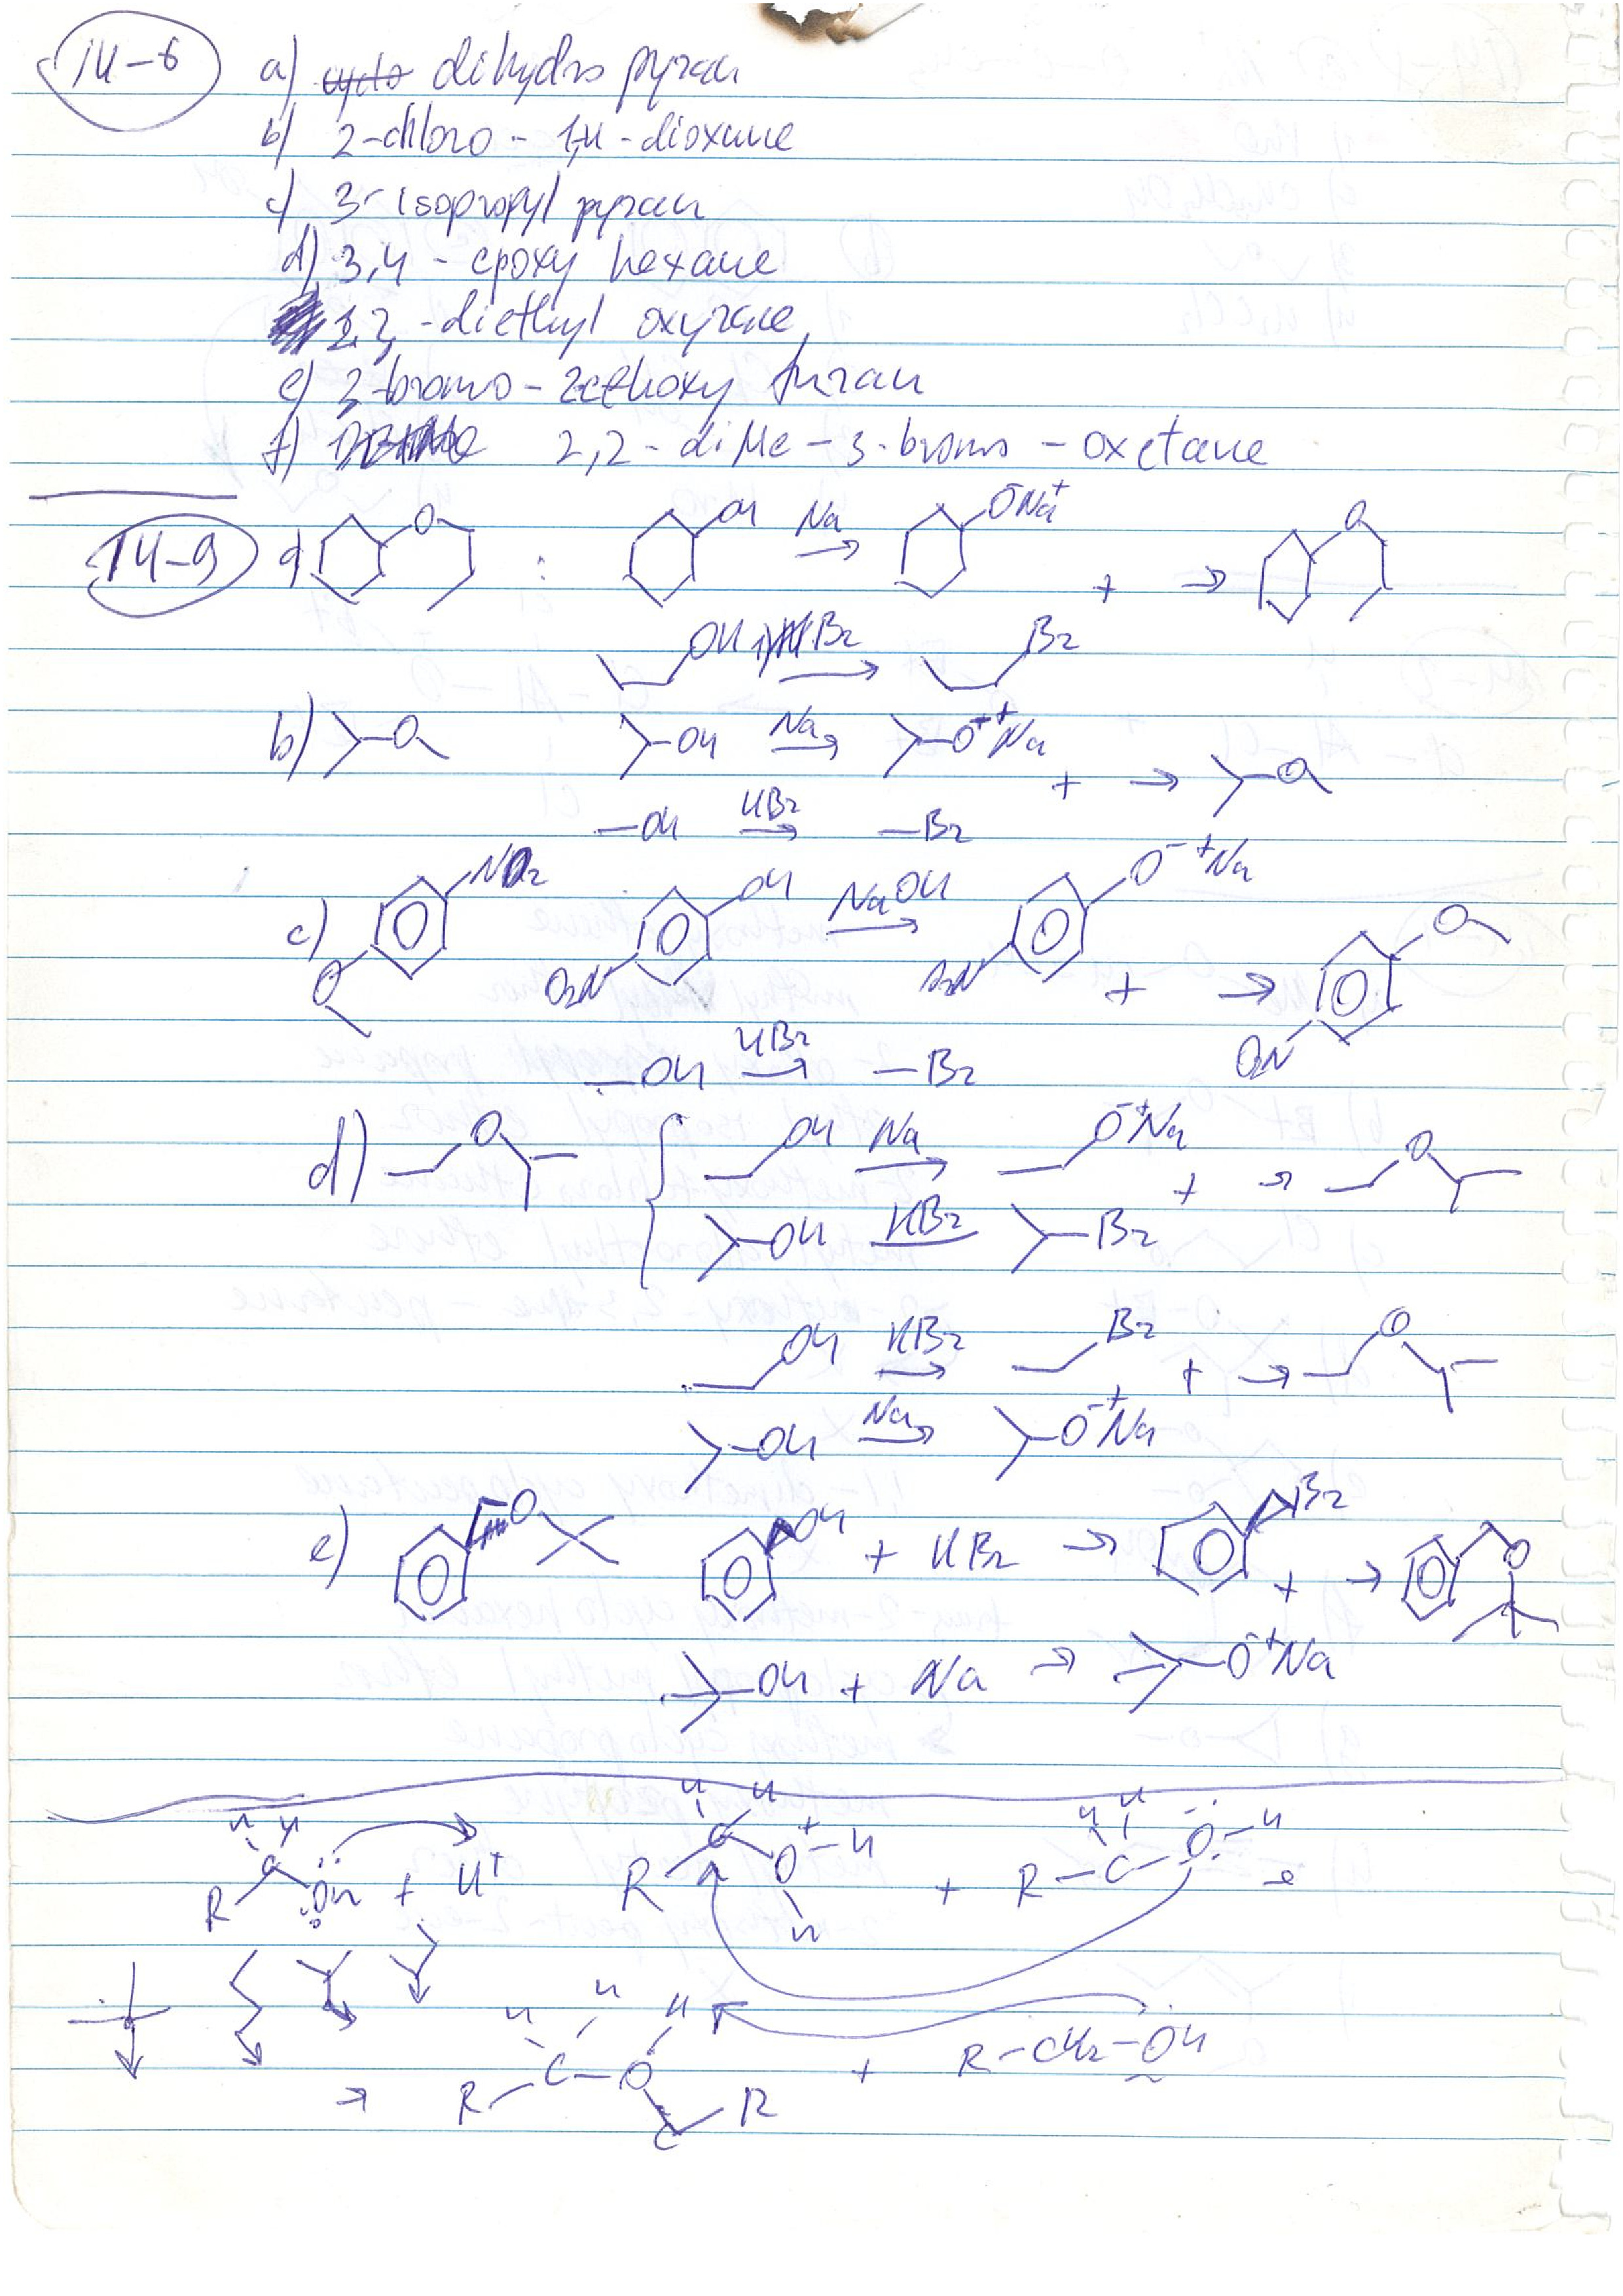 14-6 a) dihydro pyran
b) 2-chloro - 1,4 - dioxane
c) 3- isopropyl pyran
d) 3,4 - epoxy hexane
1,2, -diethyl oxyrane,
e) 3-bromo- 2ethoxy furan
f) 2,2 - diMe - 3-bromo - oxetane
14-9 a) O : OH Na → O⁻Na⁺ + → O
OH 1) HBr → Br
b) O OH Na → O⁺⁺Na + → O
OH HBr → Br
c) NO2 O OH O2N NaOH → O⁻ ⁺Na O2N + → O O2N
OH HBr → Br
d) O OH Na → O⁻⁺Na + → O
OH HBr Br
OH HBr → Br + → O
OH Na → O⁻⁺Na
e) O OH + HBr → Br + → O
OH + Na → O⁻⁺Na
R C H H OH + H⁺ R C H H O⁺-H H + R - C H H - O - H
→ R - C H H - O H C R + R - CH2 - OH